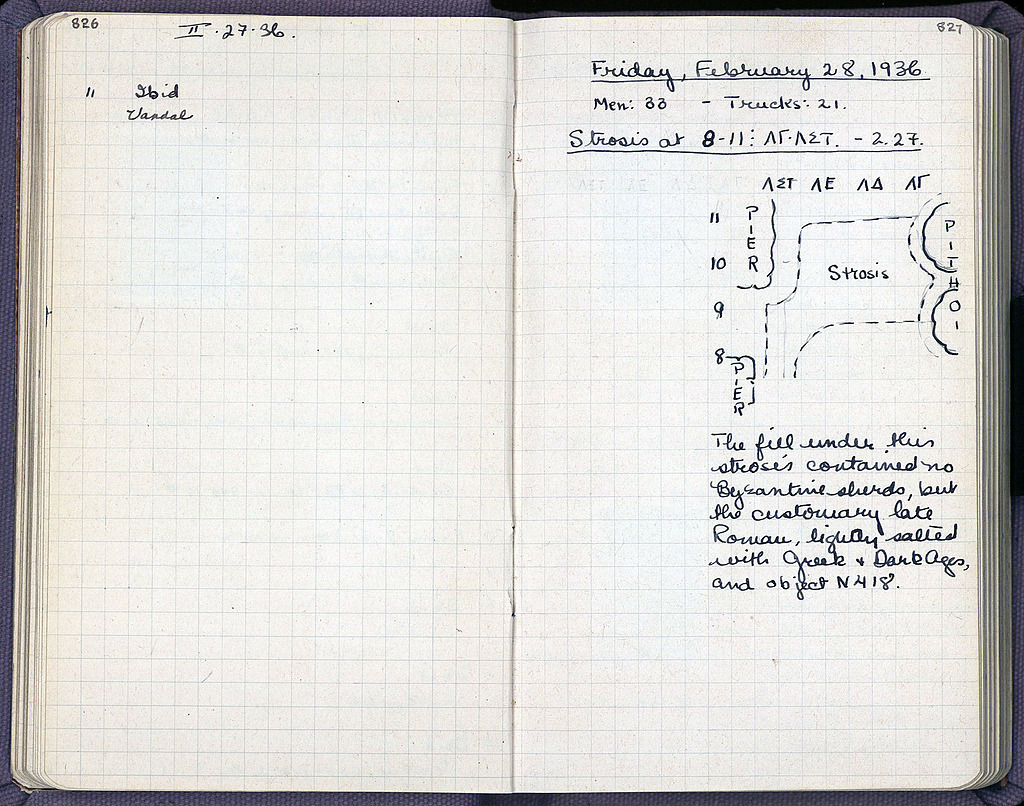 826
II · 27 · 36.
" Ibid
Vandal
827
Friday, February 28, 1936
Men: 33 - Trucks: 21.
Strosis at 8-11: ΛΓ·ΛΣΤ. - 2.27.
ΛΣΤ ΛΕ ΛΔ ΛΓ
11
10
9
8
PIER
Strosis
PITHOI
PIER
The fill under this
strosis contained no
Byzantine sherds, but
the customary late
Roman, lightly salted
with Greek + Dark Ages,
and object N 418.